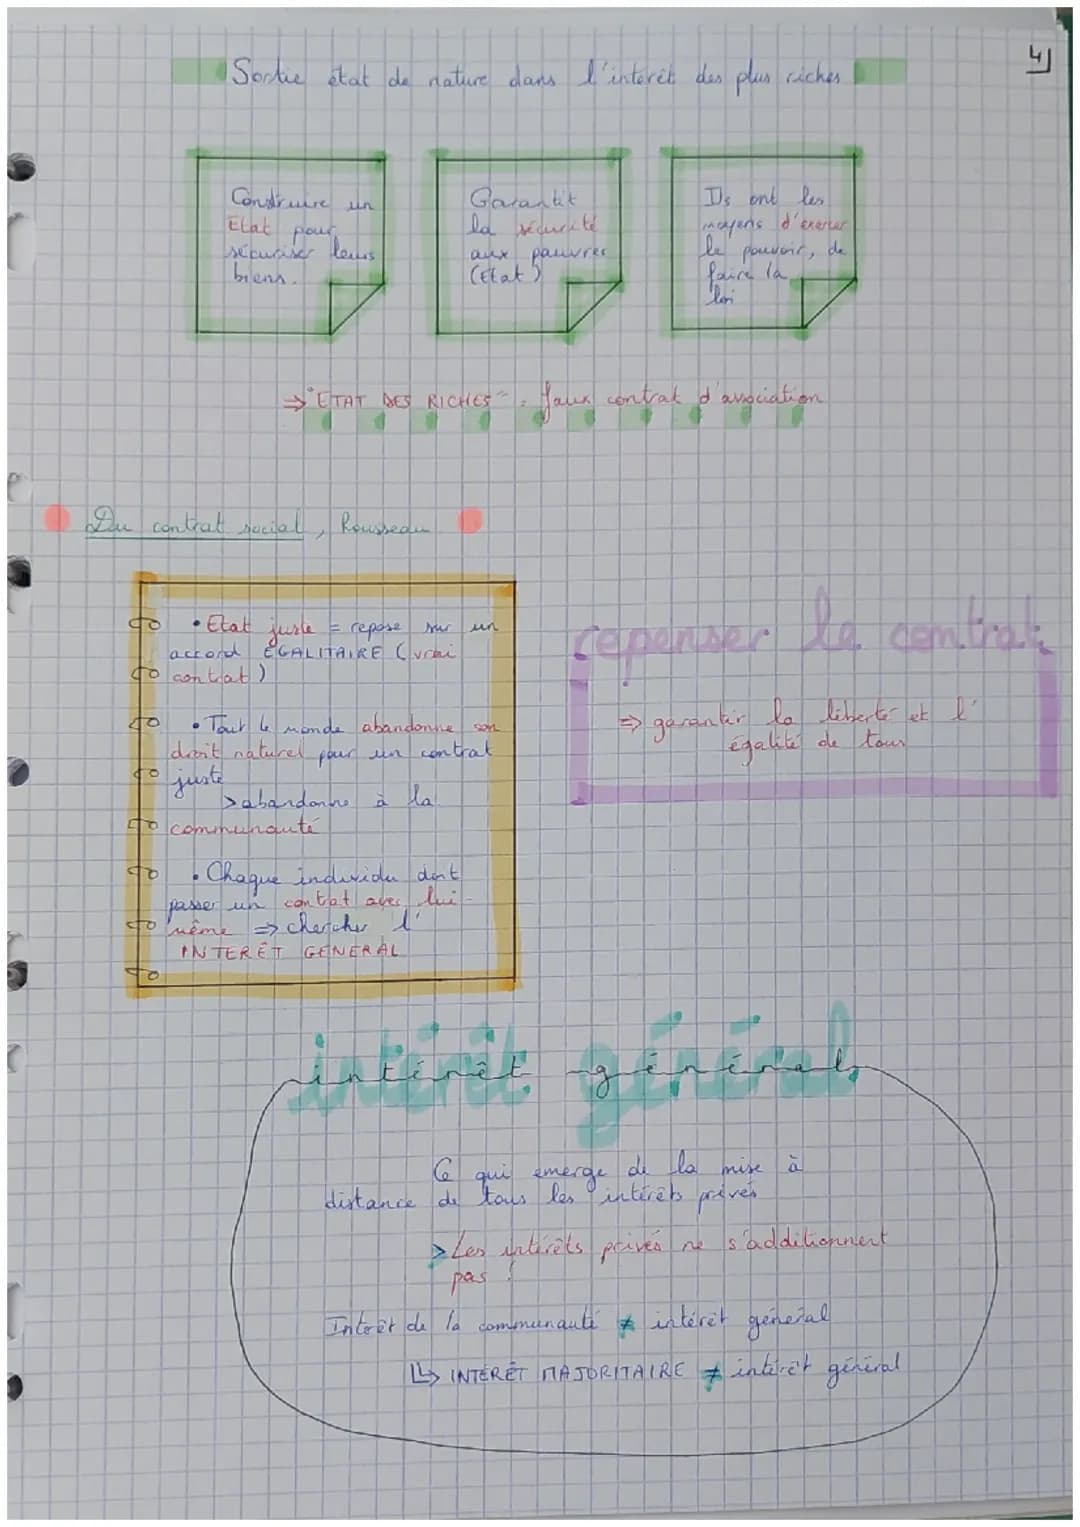 4)
Sortie état de nature dans l'intérêt des plus riches
Construire un
Etat pour
sécuriser leurs
biens.
Garantit
la sécurité
aux pauvres
(Etat)
Ils ont les
moyens d'exercer
le pouvoir, de
faire la
loi
⇒ "ETAT DES RICHES" = faux contrat d'association
Du contrat social, Rousseau
• Etat juste = repose sur un
accord EGALITAIRE (vrai
contrat)
• Tout le monde abandonne son
droit naturel pour un contrat
juste
> abandonne à la
communauté
• Chaque individu doit
passer un contrat avec lui-
même ⇒ chercher l'
INTERÊT GENERAL
repenser le contrat
⇒ garantir la liberté et l'
égalité de tous
intérêt général
Ce qui émerge de la mise à
distance de tous les intérêts privés
> Les intérêts privés ne s'additionnent
pas !
Intérêt de la communauté ≠ intérêt général
↳ INTERÊT MAJORITAIRE ≠ intérêt général